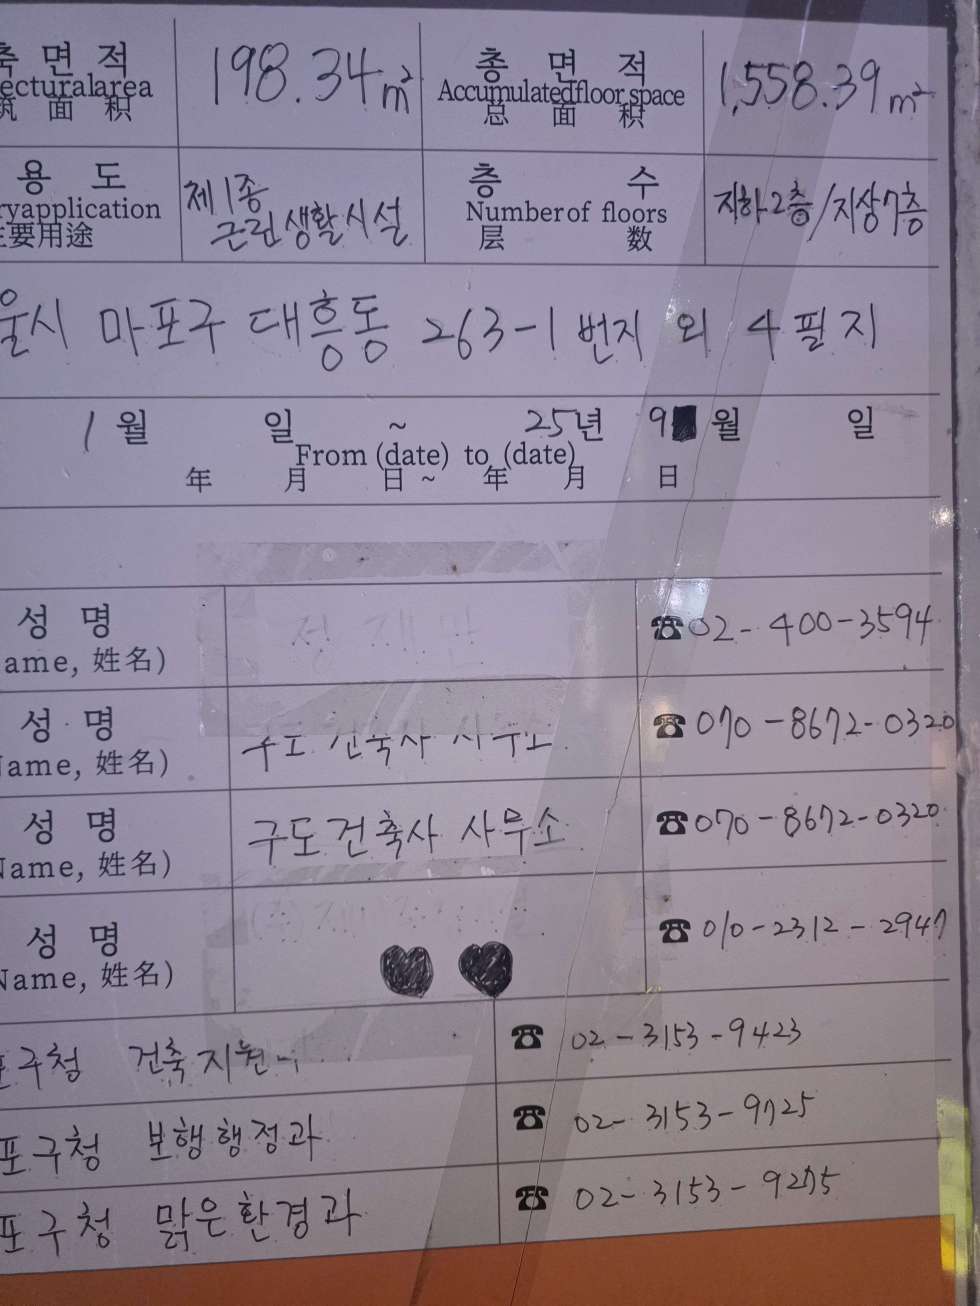 축 면 적 198.34㎡ 총 면 적 1,558.39㎡
ecturalarea Accumulatedfloor space
筑 面 积 总 面 积
용 도 제1종 층 수 지하2층/지상7층
ryapplication 근린생활시설 Number of floors
主要用途 层 数
울시 마포구 대흥동 263-1 번지 외 4필지
1월 일 ~ 25년 9 월 일
From (date) to (date)
年 月 日 ~ 年 月 日
성 명 정재만 ☎02-400-3594
ame, 姓名)
성 명 구도건축사 사무소 ☎070-8672-0320
Name, 姓名)
성 명 구도건축사 사무소 ☎070-8672-0320
Name, 姓名)
성 명 ☎010-2312-2947
Name, 姓名)
포구청 건축지원 ☎ 02-3153-9423
포구청 보행행정과 ☎ 02-3153-9725
포구청 맑은환경과 ☎ 02-3153-9275